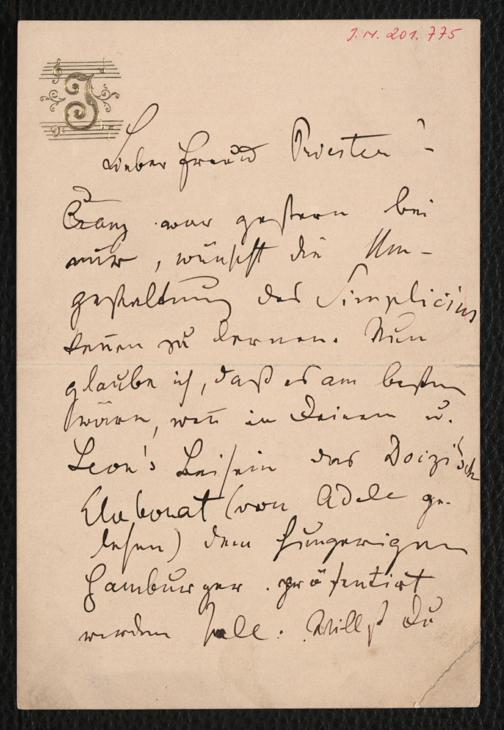 J.N. 201.775
J
Lieber Freund Priester!
Cranz war gestern bei
mir, wünscht die Um-
gestaltung des Simplicius
kennen zu lernen. Nun
glaube ich, daß es am besten
wäre, wenn in Deinem u.
Leon's Beisein das Doczi'sch
Elaborat (von Adele ge-
lesen) dem hungerigen
Hamburger präsentirt
werden solle. Willst Du